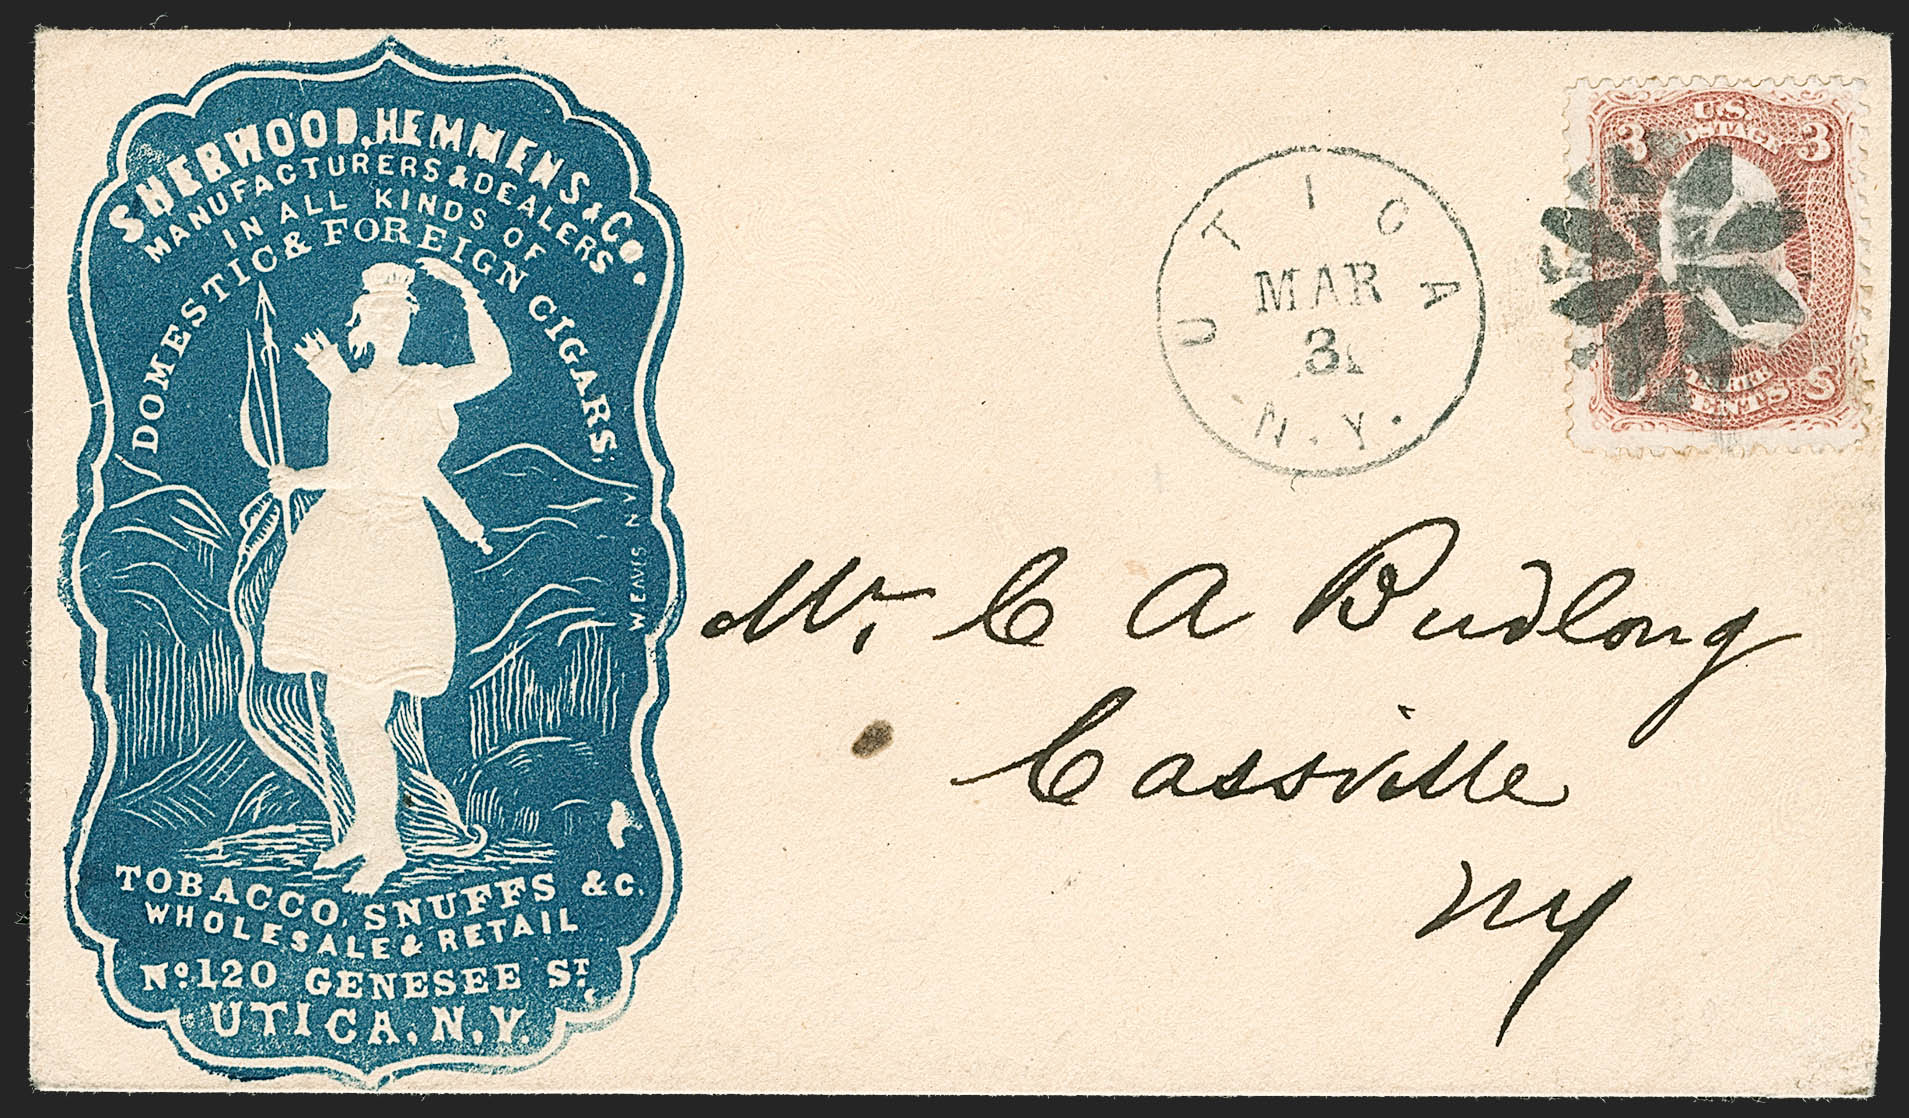 SHERWOOD, HEMMENS & Co.
MANUFACTURERS & DEALERS
IN ALL KINDS OF
DOMESTIC & FOREIGN CIGARS,
WEAVES N Y
TOBACCO, SNUFFS & C.
WHOLESALE & RETAIL
No. 120 GENESEE ST.
UTICA, N.Y.
UTICA
MAR
31
N.Y.
U.S.
POSTAGE
3 3
CENTS
Mr. C A Budlong
Cassville
NY